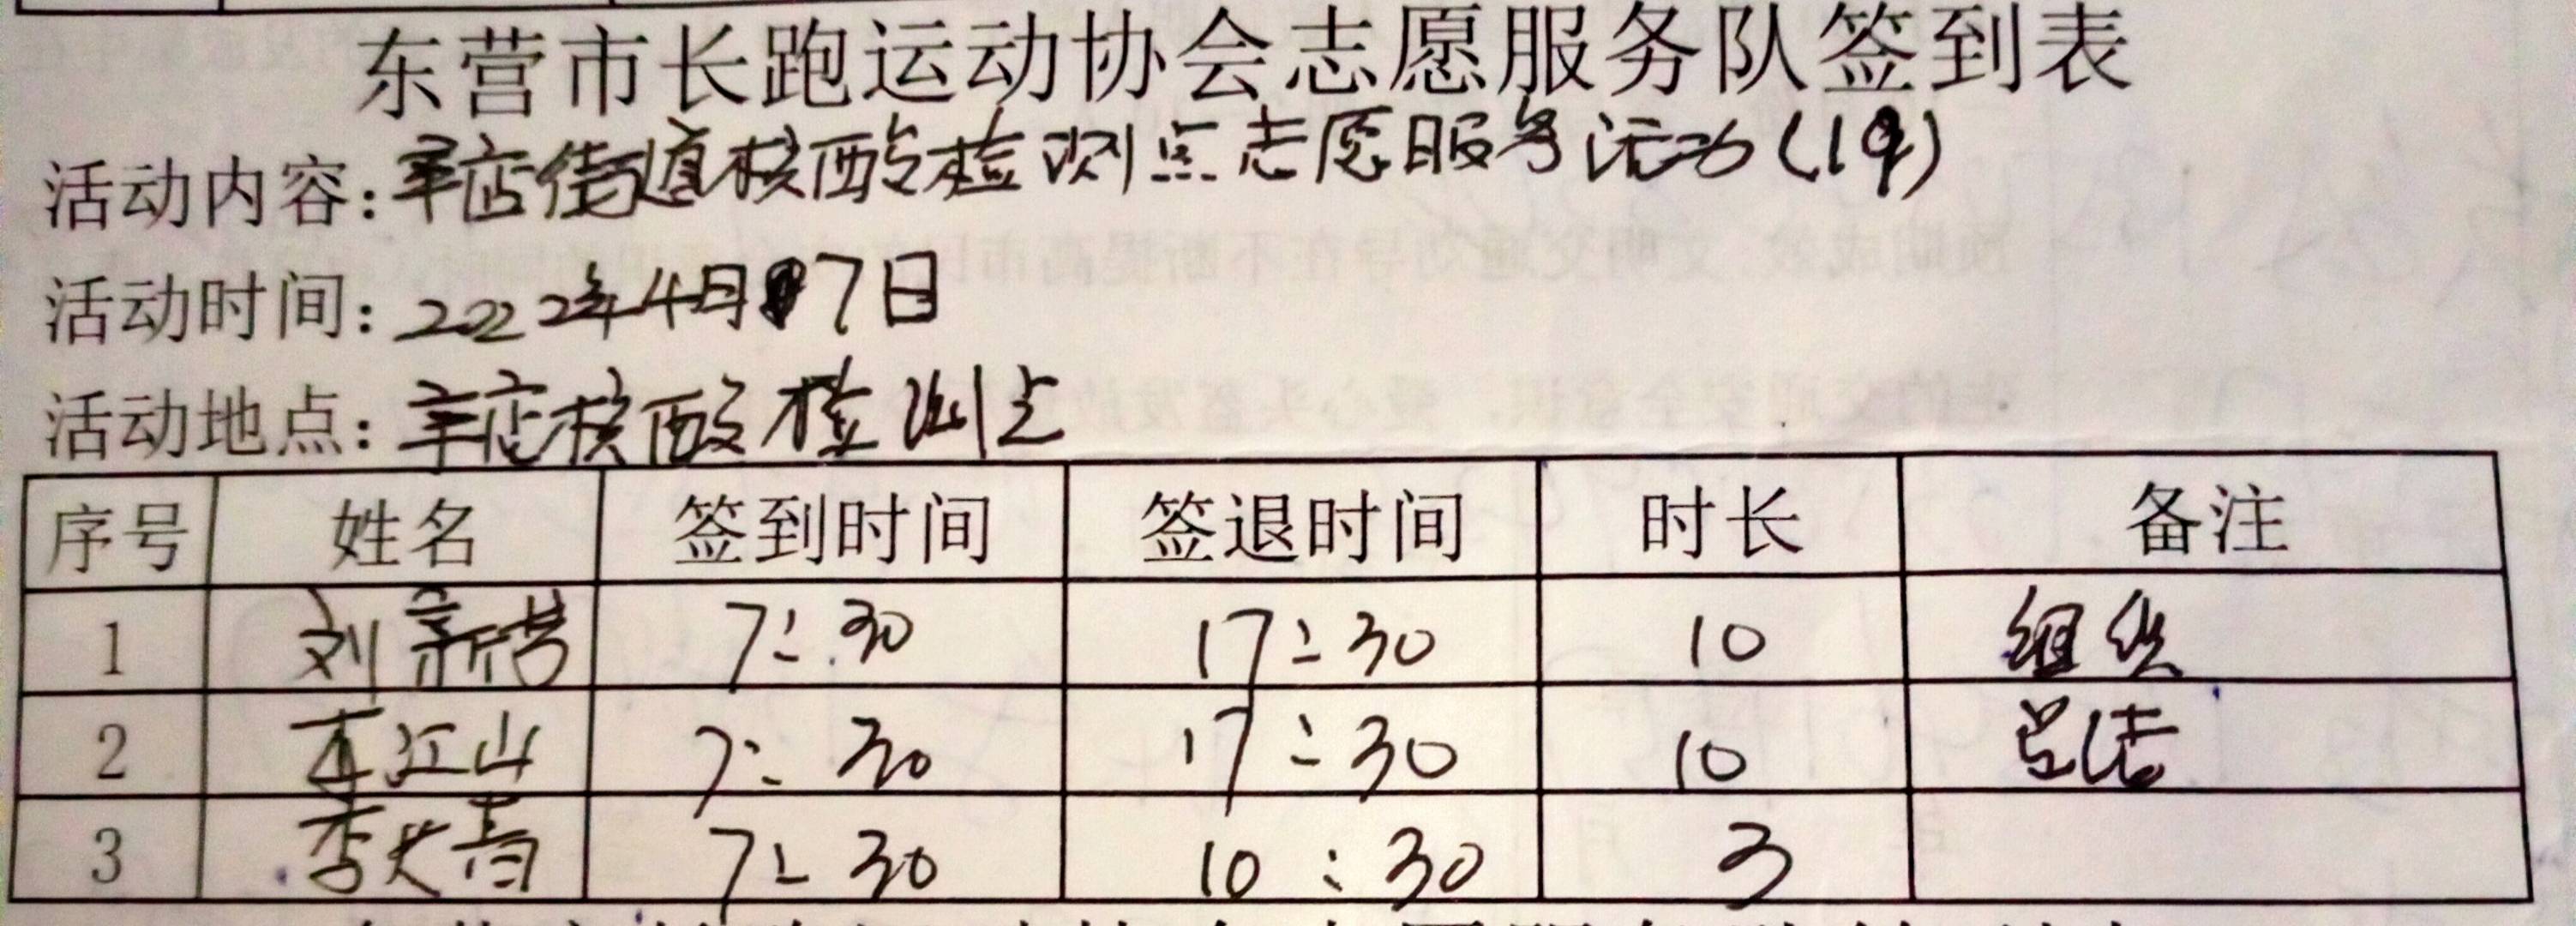 东营市长跑运动协会志愿服务队签到表
活动内容:辛店街道核酸检测点志愿服务活动(19)
活动时间:2022年4月17日
活动地点:辛店核酸检测点
序号 姓名 签到时间 签退时间 时长 备注
1 刘新 7:30 17:30 10 组织
2 江山 7:30 17:30 10 总结
3 李 青 7:30 10:30 3